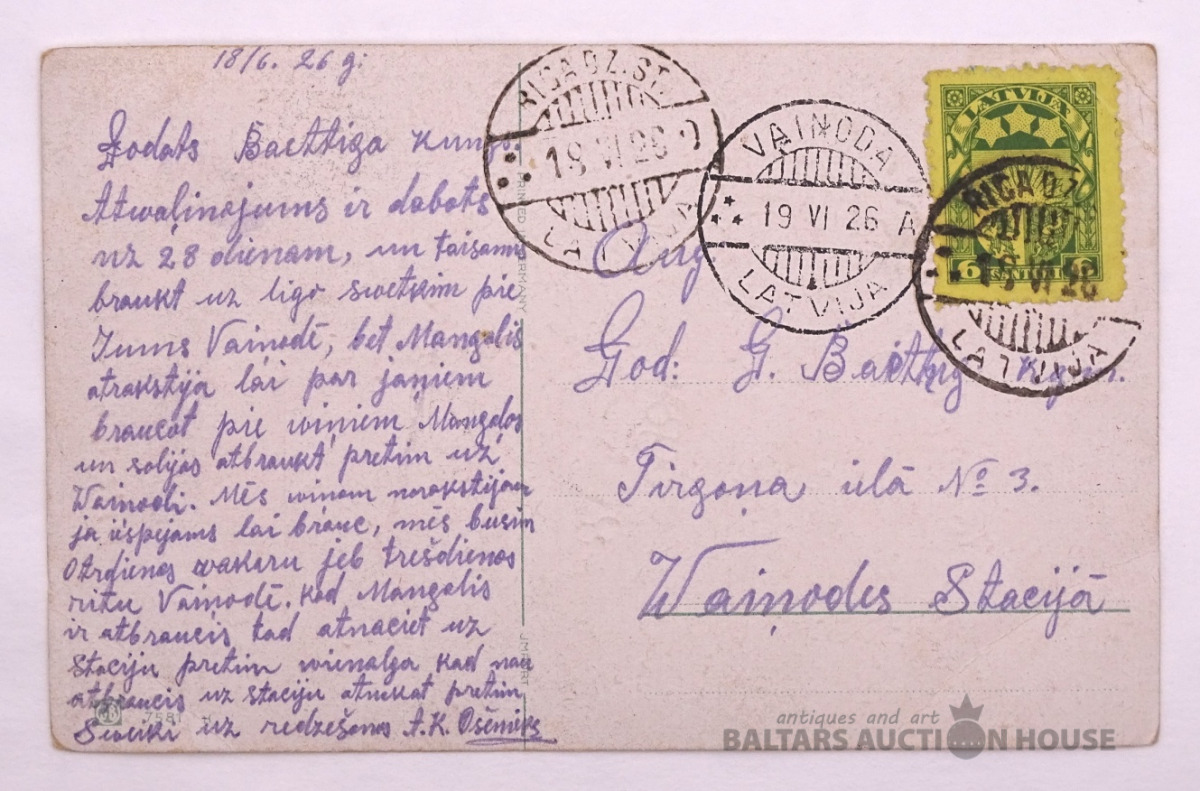 18/6. 26 g:
Godats Baettiga kungs.
Atwaļinojums ir dabots
uz 28 dienam, un taisamu
braukt uz ligo swetkim pie
Jums Vaiņodē, bet Mangalis
atrakstija lai par jaņiem
braucot pie wiņiem Mangaļos
un solijas atbraukt pretim uz
Waiņodi. Mēs wiņam norakstijam
ja iispijams lai brauc, mēs busim
Otrdienas wakaru jeb trešdienas
ritu Vaiņodē. Kad Mangalis
ir atbraucis tad atnaciet uz
Staciju pretim wienalga kad nau
atbraucis uz staciju atnakat pretim
Sweiki uz redzešanos A.K. Ošenieks
PRINTED GERMANY
IMPORT
7581
RIGA DZ. ST.
18 VI 26
LATVIJA
VAIŅODA
19 VI 26 A
LATVIJA
LATVIJA
6 SANTIMI 6
RIGA DZ.
18 VI 26
LATVIJA
Aug.
God: G. Baettig kgm.
Tirgoņa ilā № 3.
Waiņodes Stacijā
antiques and art
BALTARS AUCTION HOUSE